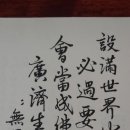 設滿世界火
必過要
會當成佛
廣濟生
無